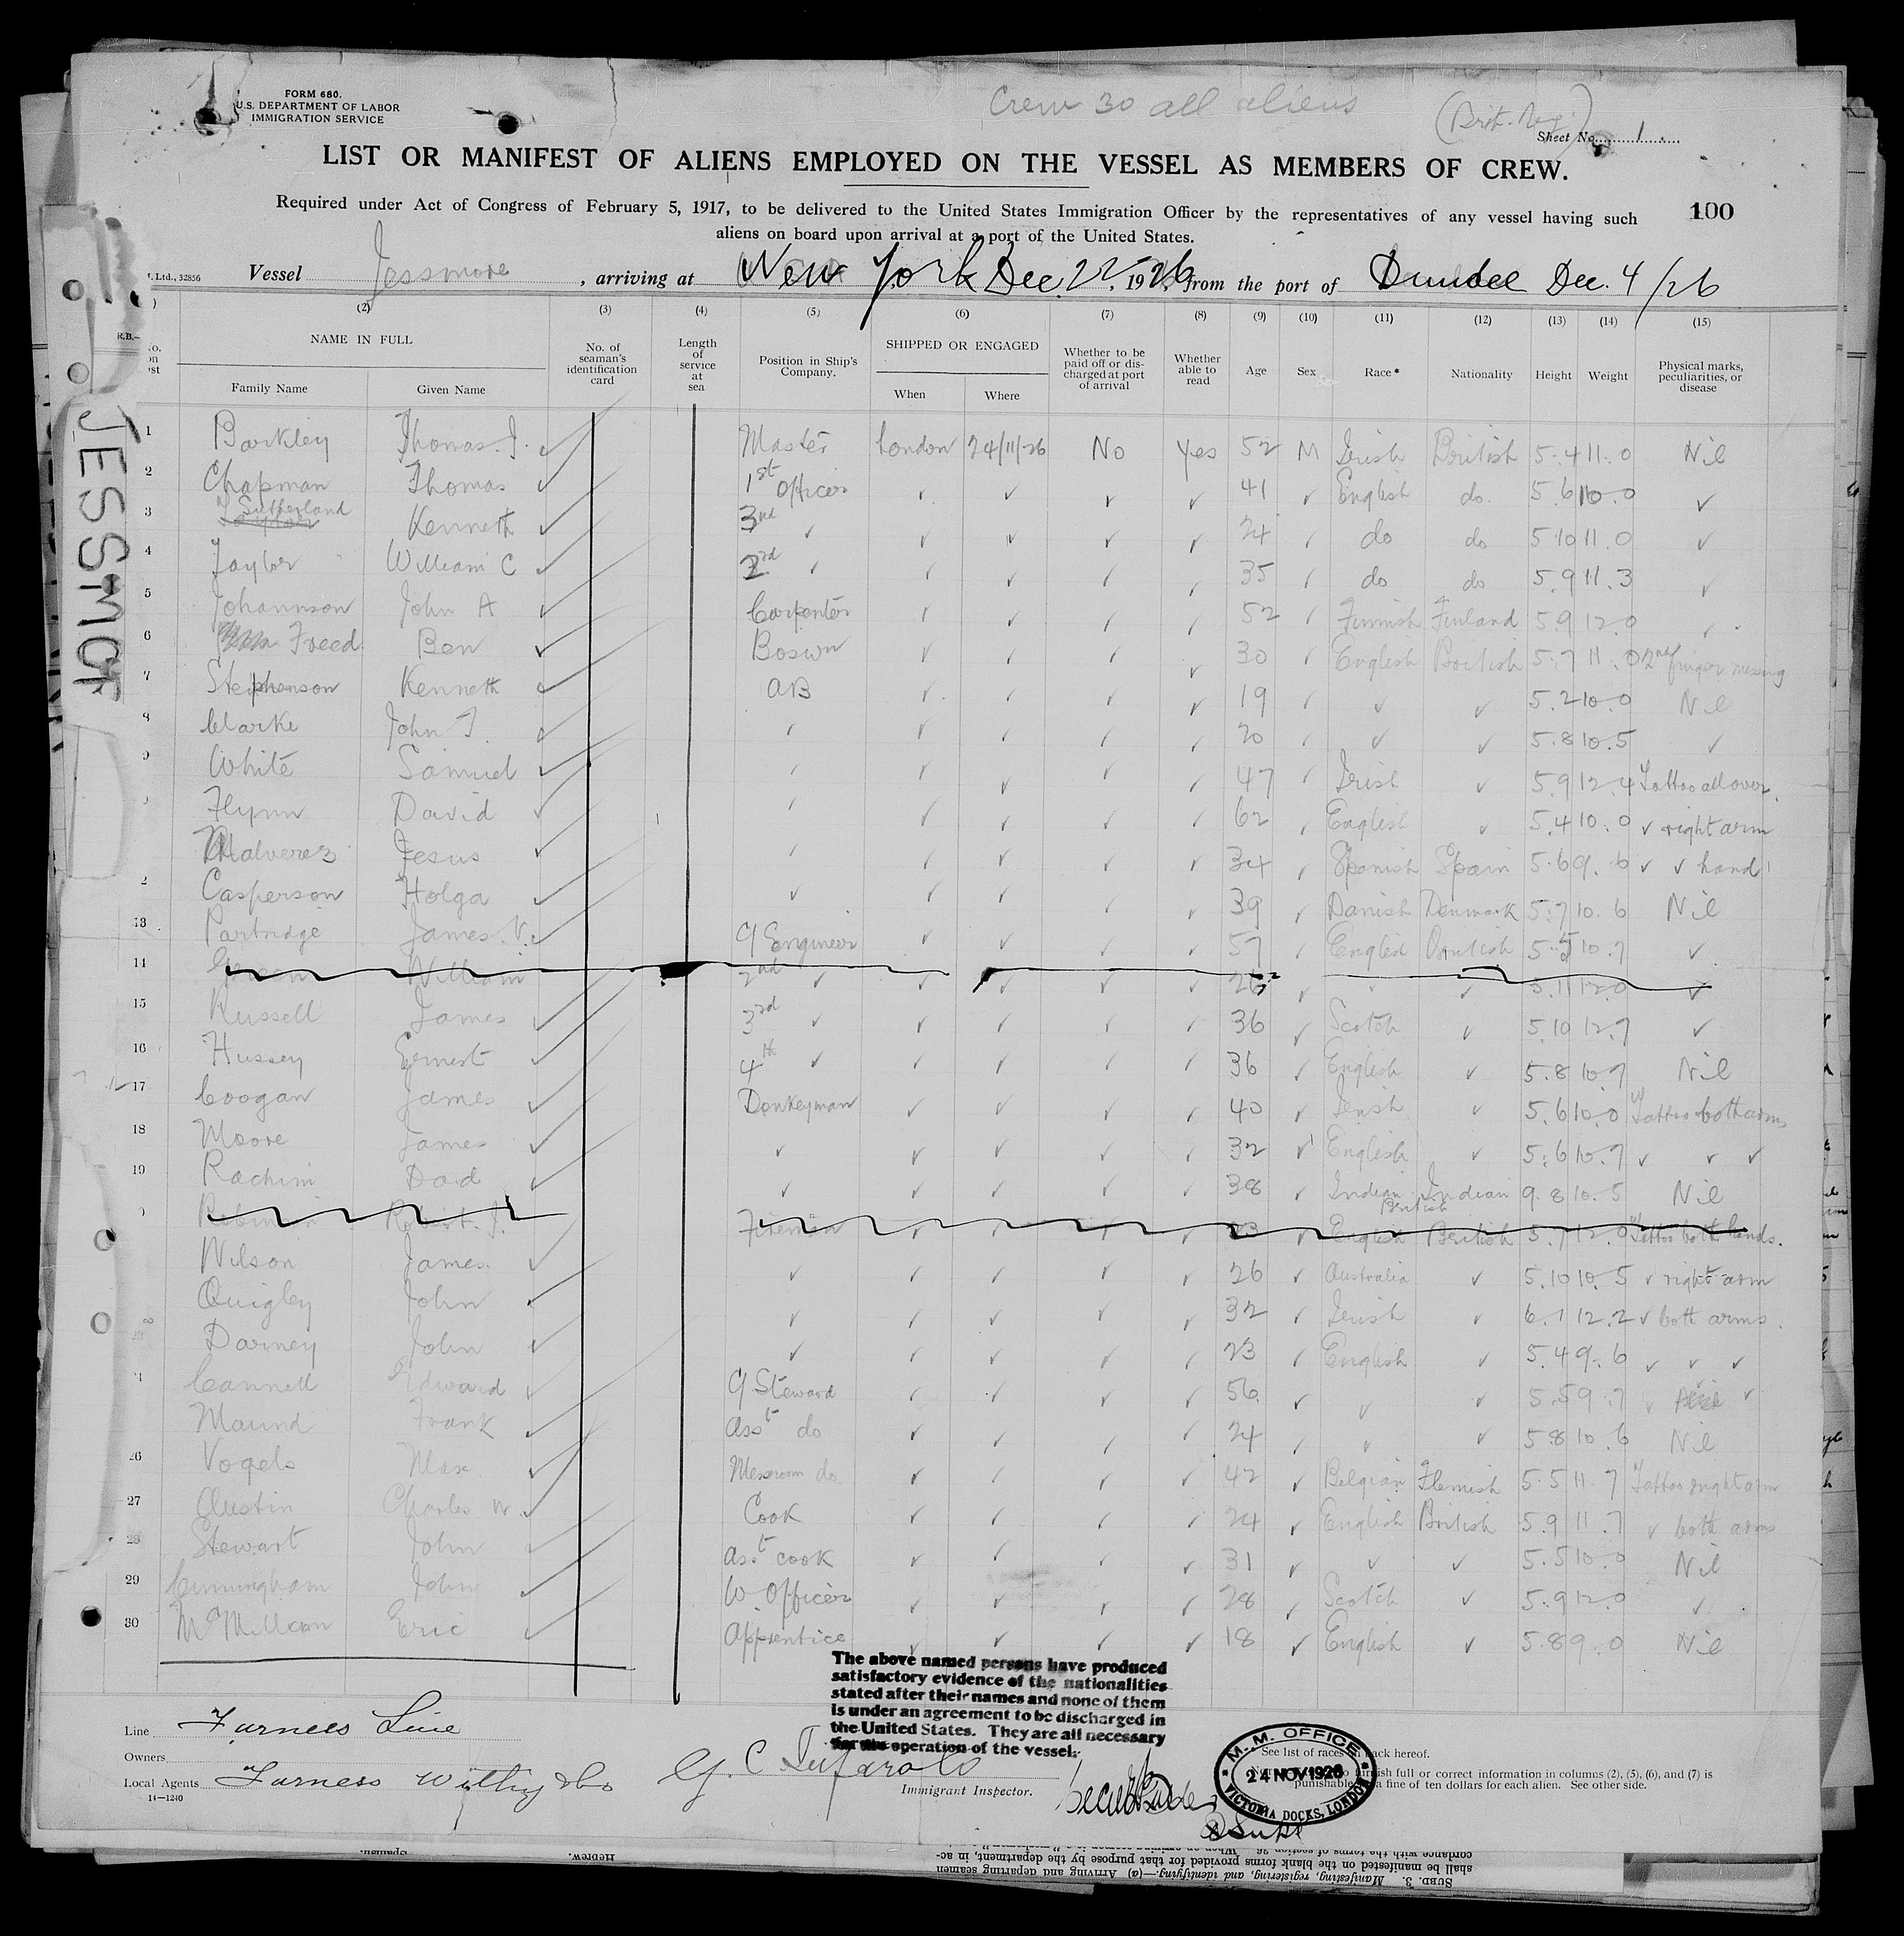 FORM 680.
U.S. DEPARTMENT OF LABOR
IMMIGRATION SERVICE
Crew 30 all aliens
Sheet No. 1
LIST OR MANIFEST OF ALIENS EMPLOYED ON THE VESSEL AS MEMBERS OF CREW.
Required under Act of Congress of February 5, 1917, to be delivered to the United States Immigration Officer by the representatives of any vessel having such
aliens on board upon arrival at a port of the United States.
100
Ltd., 32856
Vessel Jessmore, arriving at New York Dec. 22, 1926, from the port of Dundee Dec. 4/26
(2) (3) (4) (5) (6) (7) (8) (9) (10) (11) (12) (13) (14) (15)
NAME IN FULL
Family Name Given Name
No. of seaman's identification card
Length of service at sea
Position in Ship's Company.
SHIPPED OR ENGAGED
When Where
Whether to be paid off or discharged at port of arrival
Whether able to read
Age Sex Race* Nationality Height Weight
Physical marks, peculiarities, or disease
JESSMOR
1 Barkley Thomas J. ✓ Master London 24/11/26 No Yes 52 M Irish British 5.4 11.0 Nil
2 Chapman Thomas ✓ 1st Officer ✓ ✓ ✓ ✓ 41 ✓ English do. 5.6 10.0 ✓
3 Sutherland Kenneth ✓ 3rd ✓ ✓ ✓ ✓ ✓ 24 ✓ do do 5.10 11.0 ✓
4 Taylor William C ✓ 2nd ✓ ✓ ✓ ✓ ✓ 35 ✓ do do 5.9 11.3 ✓
5 Johannson John A ✓ Carpenter ✓ ✓ ✓ ✓ 52 ✓ Finnish Finland 5.9 12.0 ✓
6 Freed Ben ✓ Bosun ✓ ✓ ✓ ✓ 30 ✓ English British 5.7 11.0 2nd finger missing
7 Stephenson Kenneth ✓ AB ✓ ✓ ✓ ✓ 19 ✓ ✓ ✓ 5.2 10.0 Nil
8 Clarke John T. ✓ ✓ ✓ ✓ ✓ ✓ 20 ✓ ✓ ✓ 5.8 10.5 ✓
White Samuel ✓ ✓ ✓ ✓ ✓ ✓ 47 ✓ Irish ✓ 5.9 12.4 Tattoo all over.
Flynn David ✓ ✓ ✓ ✓ ✓ ✓ 62 ✓ English ✓ 5.4 10.0 ✓ right arm
Malverez Jesus ✓ ✓ ✓ ✓ ✓ ✓ 34 ✓ Spanish Spain 5.6 9.6 ✓ ✓ hand
2 Casperson Holga ✓ ✓ ✓ ✓ ✓ ✓ 39 ✓ Danish Denmark 5.7 10.6 Nil
13 Partridge James V. ✓ C/Engineer ✓ ✓ ✓ ✓ 57 ✓ English British 5.5 10.7 ✓
14 William 2nd ✓ ✓ ✓ ✓ ✓ 26 ✓ ✓ ✓ 5.11 12.0 ✓
15 Russell James ✓ 3rd ✓ ✓ ✓ ✓ ✓ 36 ✓ Scotch ✓ 5.10 12.7 ✓
16 Hussey Ernest ✓ 4th ✓ ✓ ✓ ✓ ✓ 36 ✓ English ✓ 5.8 10.7 Nil
17 Coogan James ✓ Donkeyman ✓ ✓ ✓ ✓ 40 ✓ Irish ✓ 5.6 10.0 Tattoo both arms
18 Moore James ✓ ✓ ✓ ✓ ✓ ✓ 32 ✓ English ✓ 5.6 10.7 ✓ ✓ ✓
19 Rachim Dad ✓ ✓ ✓ ✓ ✓ ✓ 38 ✓ Indian British Indian 9.8 10.5 Nil
Robert J. Fireman ✓ ✓ ✓ ✓ 23 ✓ English British 5.7 12.0 Tattoo both hands.
Wilson James ✓ ✓ ✓ ✓ ✓ ✓ 26 ✓ Australia ✓ 5.10 10.5 ✓ right arm
Quigley John ✓ ✓ ✓ ✓ ✓ ✓ 32 ✓ Irish ✓ 6.1 12.2 ✓ both arms.
Darney John ✓ ✓ ✓ ✓ ✓ ✓ 23 ✓ English ✓ 5.4 9.6 ✓ ✓ ✓
Cannell Edward ✓ C/Steward ✓ ✓ ✓ ✓ 56 ✓ ✓ ✓ 5.5 9.7 ✓ ✓
Maund Frank ✓ Asst do ✓ ✓ ✓ ✓ 24 ✓ ✓ ✓ 5.8 10.6 Nil
26 Vogels Max ✓ Messroom do. ✓ ✓ ✓ ✓ 42 ✓ Belgian Flemish 5.5 11.7 Tattoo right arm
27 Austin Charles W. ✓ Cook ✓ ✓ ✓ ✓ 24 ✓ English British 5.9 11.7 ✓ both arms
28 Stewart John ✓ Asst cook ✓ ✓ ✓ ✓ 31 ✓ ✓ ✓ 5.5 10.0 Nil
29 Cunningham John ✓ W. Officer ✓ ✓ ✓ ✓ 28 ✓ Scotch ✓ 5.9 12.0 ✓
30 McMillan Eric ✓ Apprentice ✓ ✓ ✓ ✓ 18 ✓ English ✓ 5.8 9.0 Nil
The above named persons have produced
satisfactory evidence of the nationalities
stated after their names and none of them
is under an agreement to be discharged in
the United States. They are all necessary
for the operation of the vessel.
Line Furness Line
Owners
Local Agents Furness Withy & Co
14—1240
Immigrant Inspector.
M. M. OFFICE
24 NOV 1926
VICTORIA DOCKS, LONDON
See list of races on back hereof.
full or correct information in columns (2), (5), (6), and (7) is
punishable a fine of ten dollars for each alien. See other side.
Spanish.
Hebrew.
cordance with the terms of section 36
shall be manifested on the blank forms provided for that purpose by the department, in ac-
SUBD. 3. Manifesting, registering, and identifying.—(a) Arriving and departing seamen